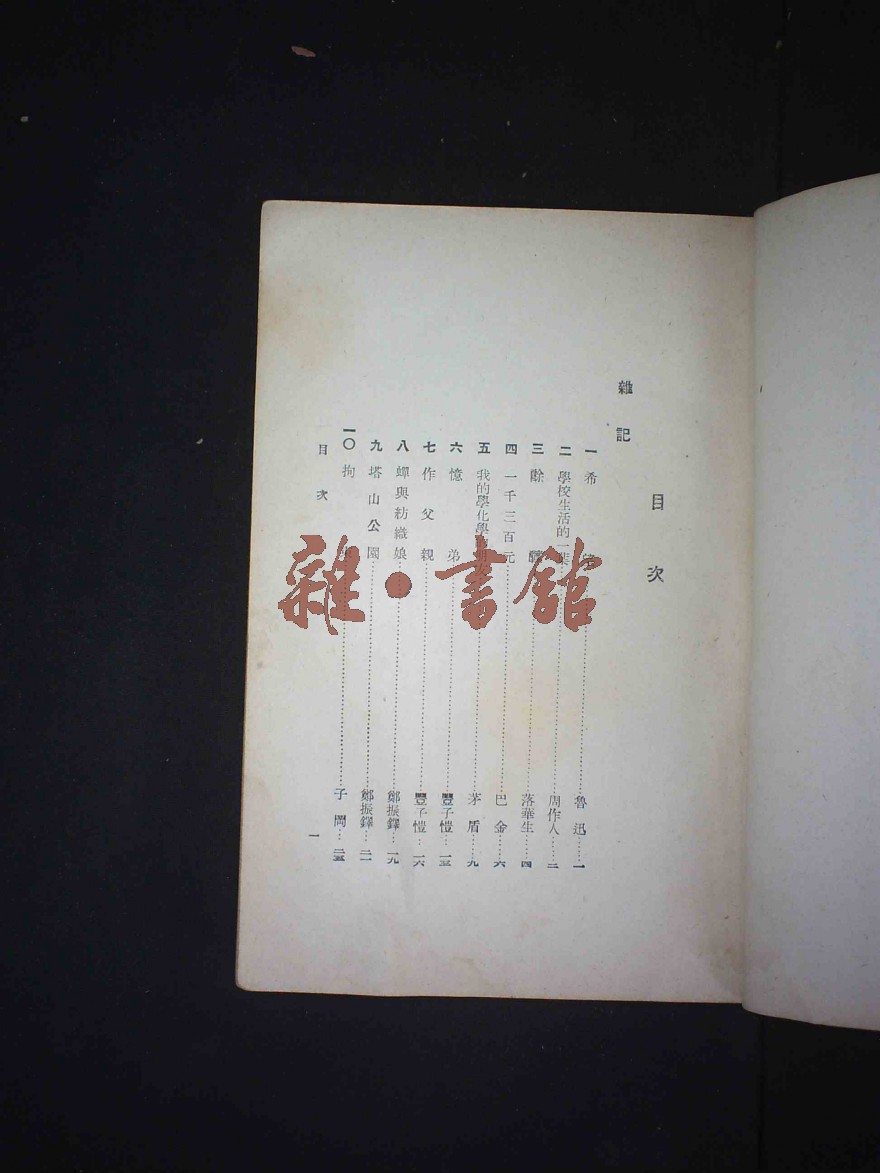 目次
雜記
一 希……魯迅……一
二 學校生活的一葉……周作人……二
三 餘……落華生……四
四 一千三百元……巴金……六
五 我的學化學……茅盾……九
六 憶弟……豐子愷……一三
七 作父親……豐子愷……一六
八 蟬與紡織娘……鄭振鐸……一九
九 塔山公園……鄭振鐸……二一
一〇 拘……子岡……二五
目次
一
雜·書館